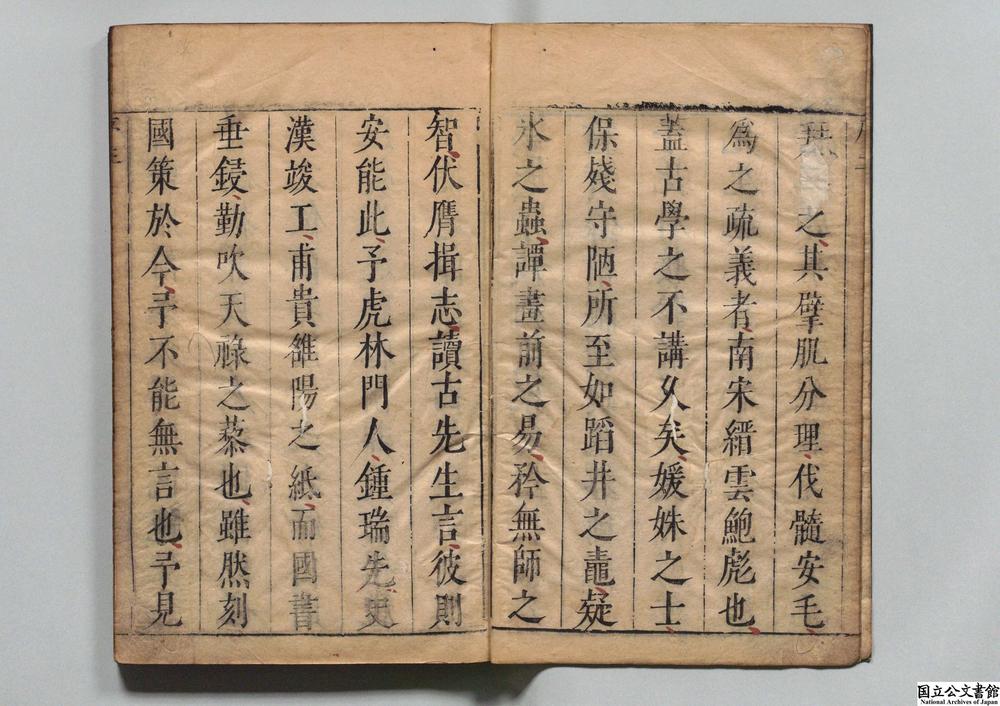 之其擘肌分理伐髓安毛
爲之疏義者南宋縉雲鮑彪也
蓋古學之不講久矣媛姝之士
保殘守陋所至如蹈井之鼃疑
氷之蟲譚畫前之易矜無師之
智伏膺揖志讀古先生言彼則
安能此予虎林門人鍾瑞先史
漢竣工甫貴雒陽之紙而國書
垂鋟勤吹天祿之藜也雖然刻
國策於今予不能無言也予見
国立公文書館
National Archives of Japan